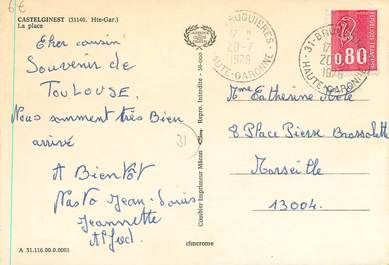 6€
CASTELGINEST (31140. Hte-Gar.)
La place
Cher cousin
Souvenir de
TOULOUSE.
Nous somment très Bien
arrivé
A Bientôt
Jean-Louis
Jeannette
Alfred.
A 31.116.00.0.0001
31
Combier Imprimeur Mâcon
Repr. Interdite - 30-000
cimcrome
BRUGUIERES
17 H
20-7
1976
HAUTE-GARONNE
31-BRUG
17
20
1976
HAUTE-GARONNE
0,80
Mme Catherine
8 Place Pierre Brossolette
Marseille
13004.